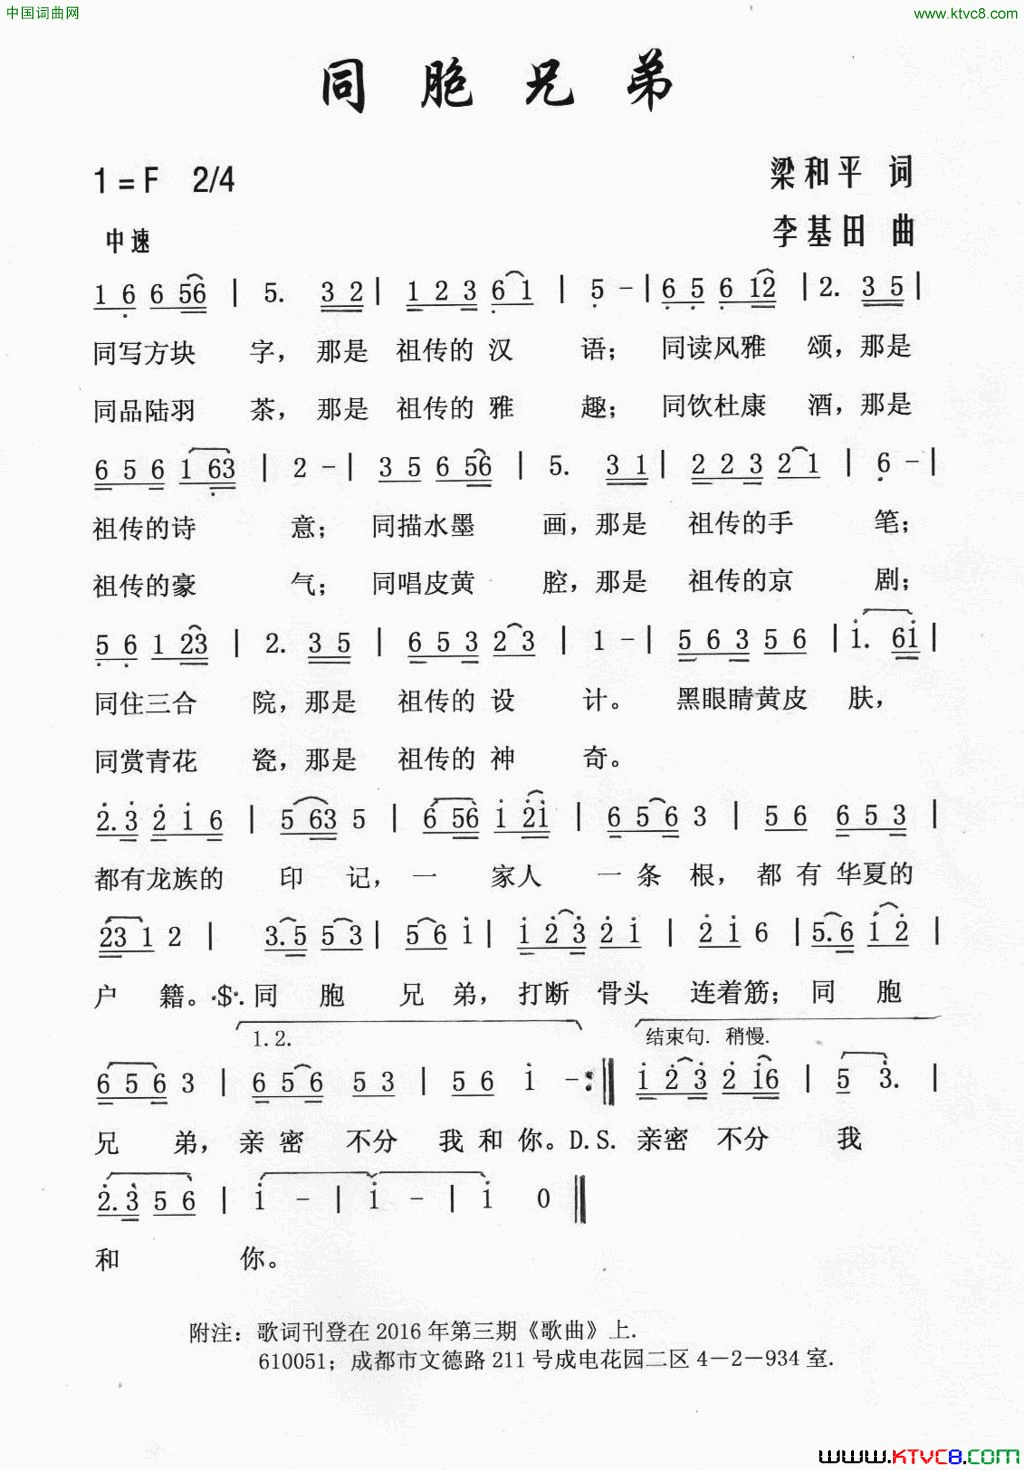 中国词曲网
www.ktvc8.com
同胞兄弟
1=F 2/4
梁和平 词
中速
李基田 曲
1 6 6 56 | 5. 3 2 | 1 2 3 6 1 | 5 - | 6 5 6 12 | 2. 3 5 |
同写方块 字，那是 祖传的 汉 语；同读风雅 颂，那是
同品陆羽 茶，那是 祖传的 雅 趣；同饮杜康 酒，那是
6 5 6 1 63 | 2 - | 3 5 6 56 | 5. 3 1 | 2 2 3 2 1 | 6 - |
祖传的诗 意；同描水墨 画，那是 祖传的手 笔；
祖传的豪 气；同唱皮黄 腔，那是 祖传的京 剧；
5 6 1 23 | 2. 3 5 | 6 5 3 2 3 | 1 - | 5 6 3 5 6 | i. 6i |
同住三合 院，那是 祖传的 设 计。 黑眼睛黄皮 肤，
同赏青花 瓷，那是 祖传的 神 奇。
2.3 2 i 6 | 5 63 5 | 6 56 i 2i | 6 5 6 3 | 5 6 6 5 3 |
都有龙族的 印 记，一 家人 一 条 根，都 有 华夏的
23 1 2 | 3.5 5 3 | 5 6 i | i 2 3 2 i | 2 i 6 | 5.6 i 2 |
户 籍。·$·.同 胞 兄 弟，打断 骨头 连着筋；同 胞
1.2. 结束句. 稍慢.
6 5 6 3 | 6 5 6 5 3 | 5 6 i - :‖ i 2 3 2 i6 | 5 3. |
兄 弟，亲 密 不分 我 和 你。D.S. 亲密 不分 我
2.3 5 6 | i - | i - | i 0 ‖
和 你。
附注：歌词刊登在 2016 年第三期《歌曲》上.
610051；成都市文德路 211 号成电花园二区 4－2－934 室.
www.KTVC8.COM